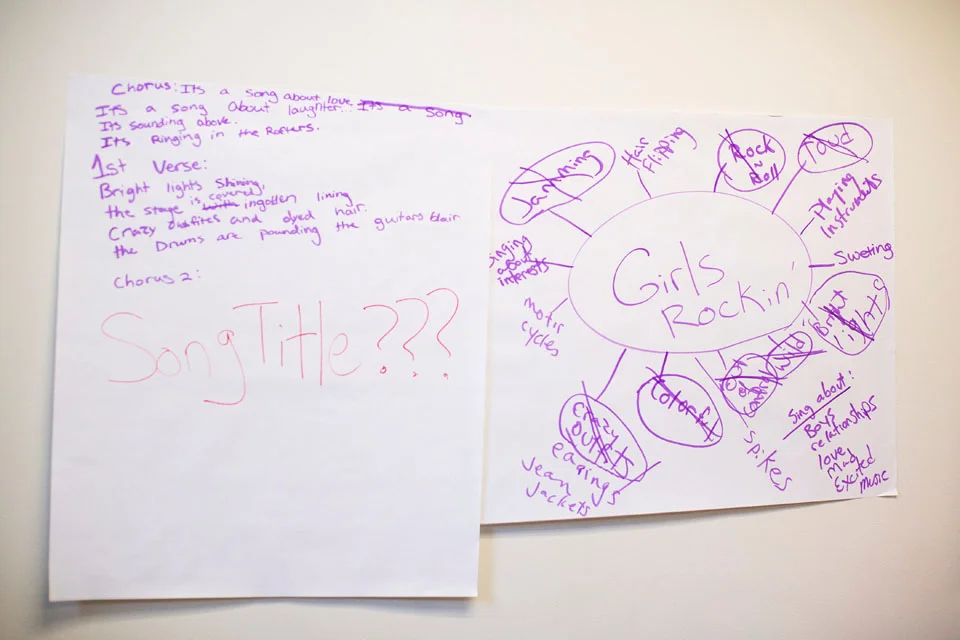 Chorus: Its a song about love
Its a song about laughter... Its a song
Its sounding above.
Its Ringing in the Rafters.
1st Verse:
Bright lights shining,
the stage is covered with ingolden lining
Crazy outfites and dyed hair.
the Drums are pounding the guitars blair
Chorus 2:
Song Title???
Girls
Rockin'
Jamming
Hair
Flipping
Rock
n
Roll
loud
Playing
Instruments
Sweting
Bright
lights
Wild
out
of
control
Spikes
Colorful
Crazy
outfits
earings
Jean
Jackets
motir
cycles
Singing
about
interests
Sing about:
Boys
relationships
love
Mad
Excited
music